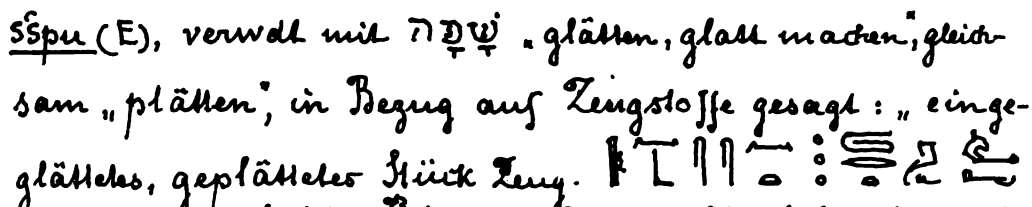 sšpu (E), verwdt mit שָׁפָה „glätten, glatt machen“, gleich-
sam „plätten“, in Bezug auf Zeugstoffe gesagt: „einge-
glättetes, geplättetes Stück Zeug.